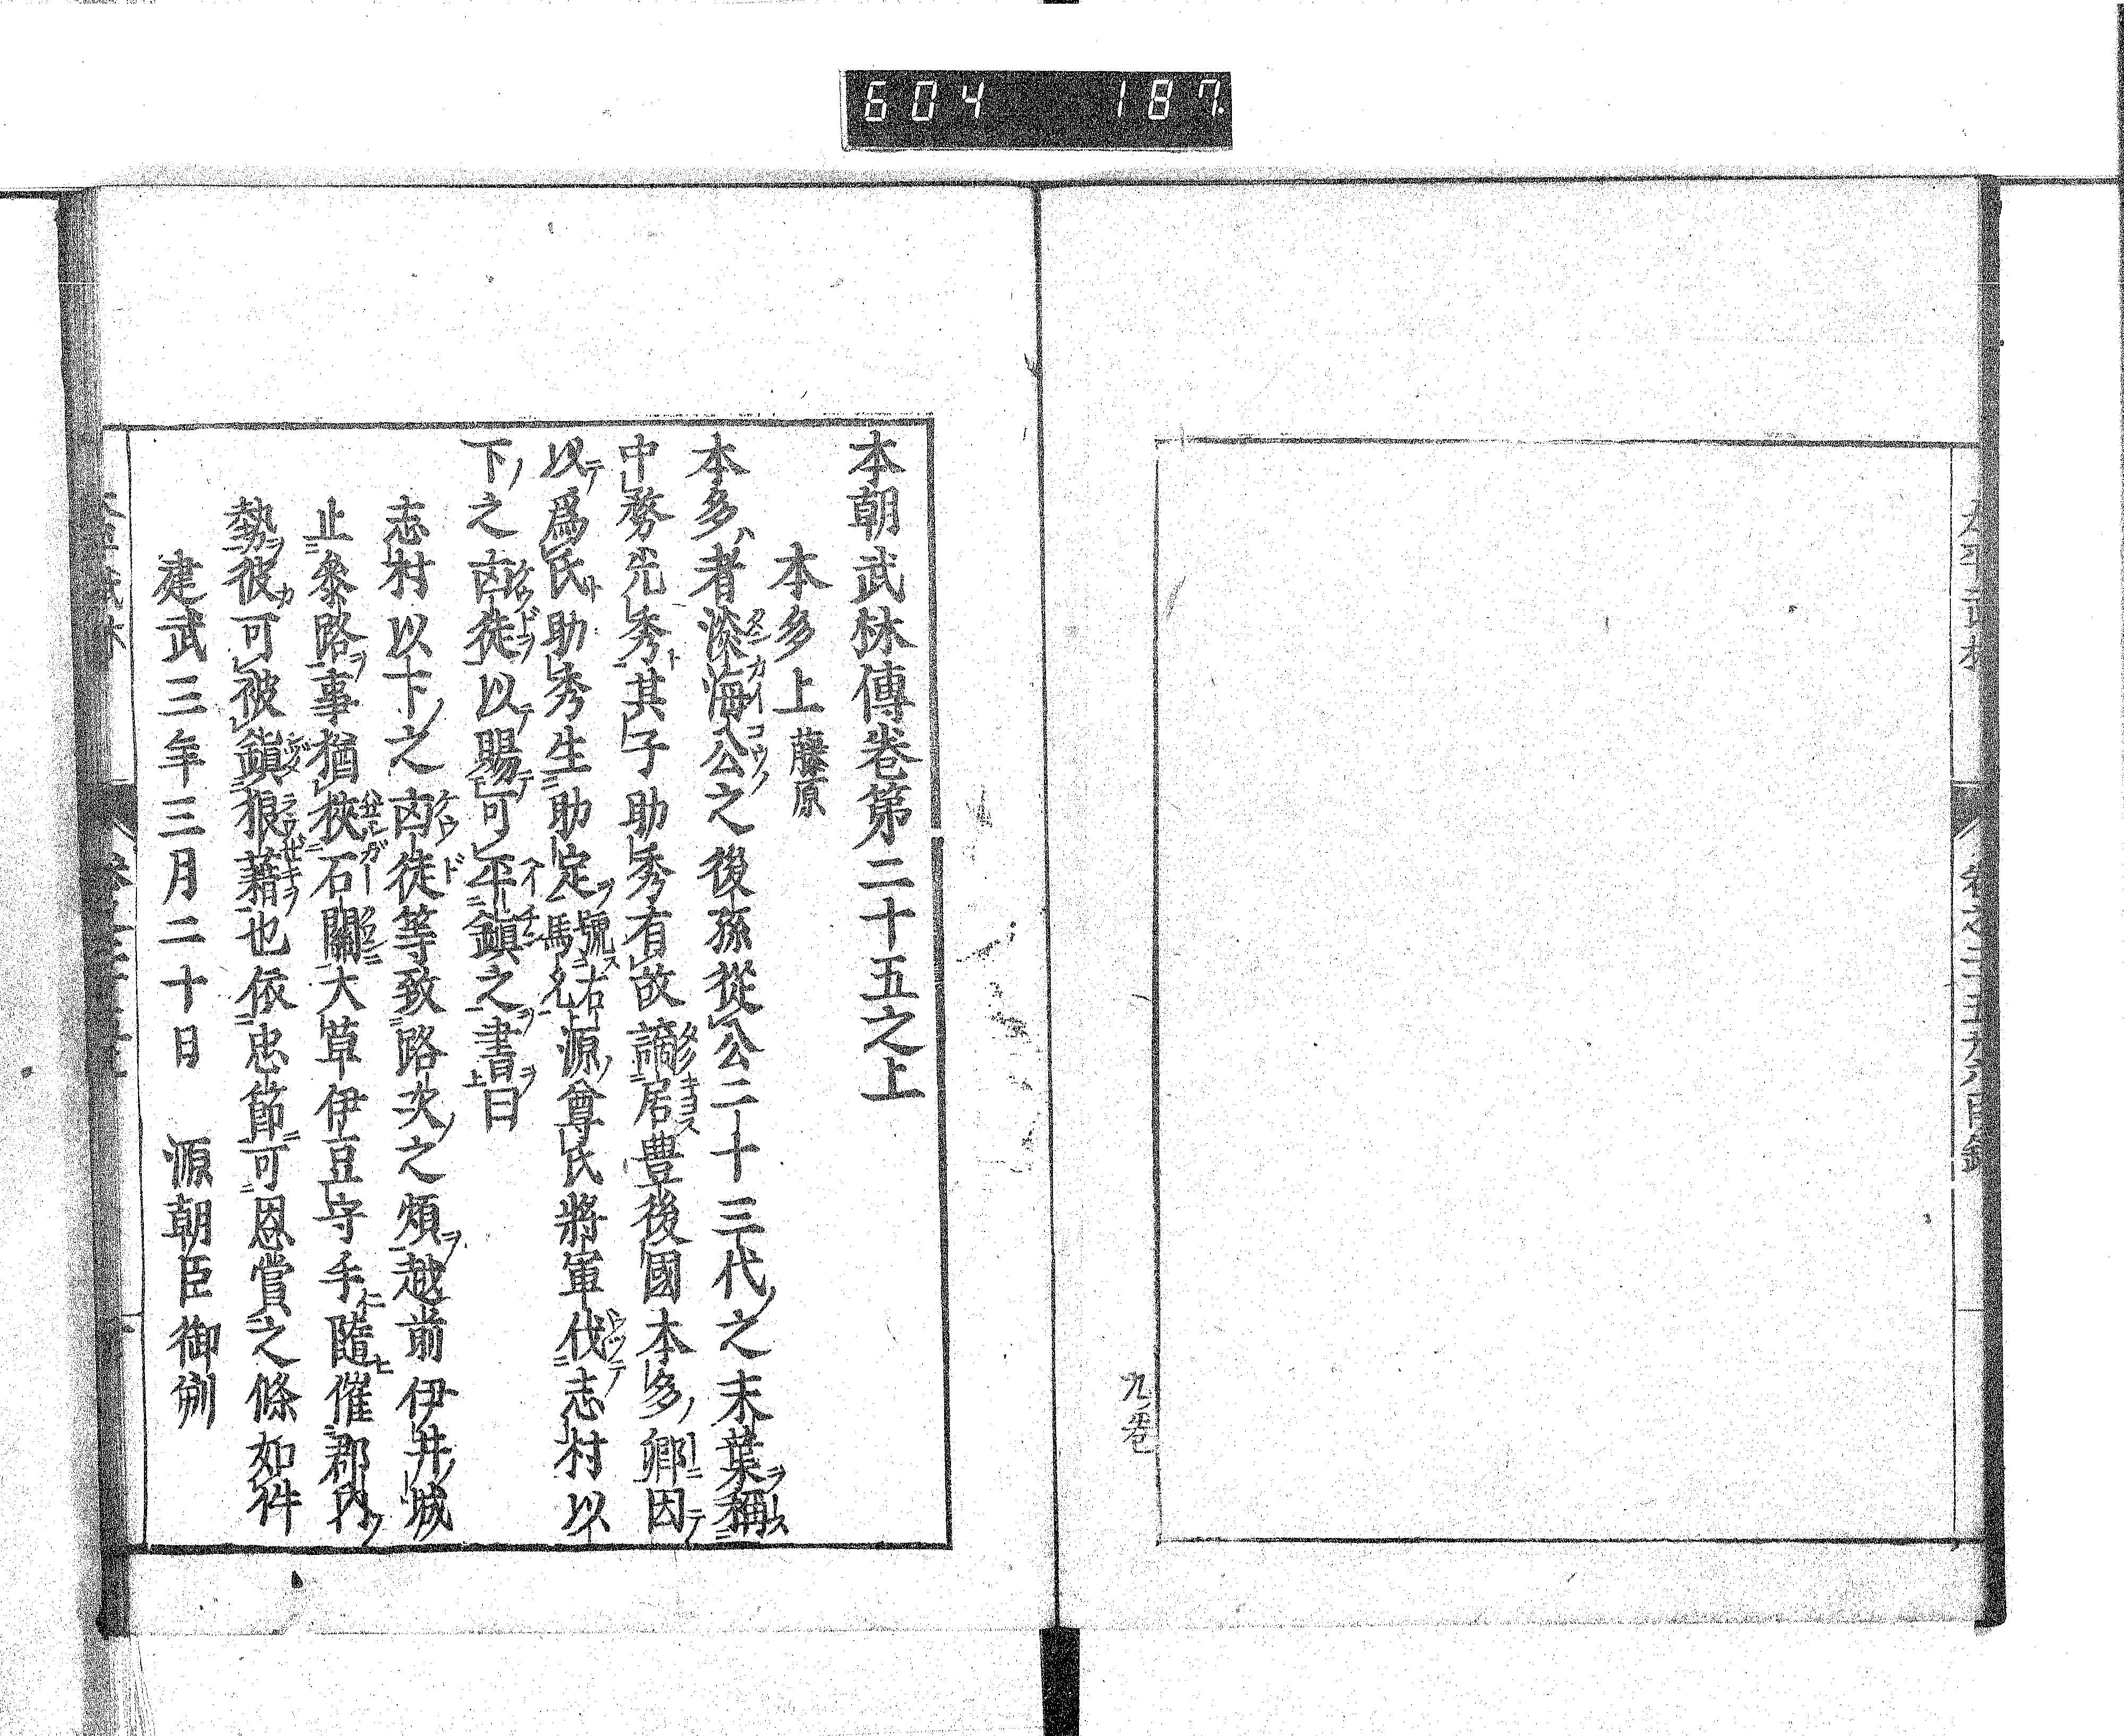 604 187.
九卷
本朝武林傳卷第二十五之上
本多上 藤原
本多者淡海公之後孫從公二十三代之末葉稱
中務光秀其子助秀有故謫居豊後國本多鄉因
以爲氏助秀生助定號右馬允源尊氏將軍伐志村以
下之凶徒以賜可平鎭之書曰
志村以下之凶徒等致路次之煩越前伊井城
止參路事猶挾石關大草伊豆守手隨催郡内
勢彼可被鎭狼藉也依忠節可恩賞之條如件
建武三年三月二十日 源朝臣御判